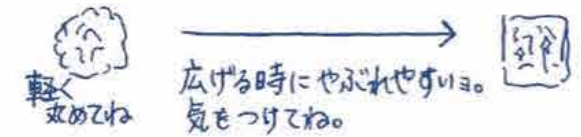 軽く
丸めてね
広げる時にやぶれやすいョ。
気をつけてね。